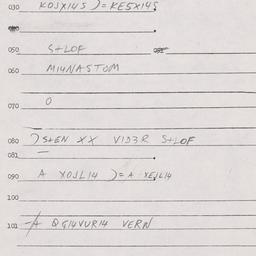 030 KOJX14S )=KE5X14S
050 S+LOF
060 M14NASTOM
070 O
080 )S+EN XX V1D3R S+LOF
081
090 A XOJL14 )=A XEJL14
100
101 A QG14VUR14 VERN